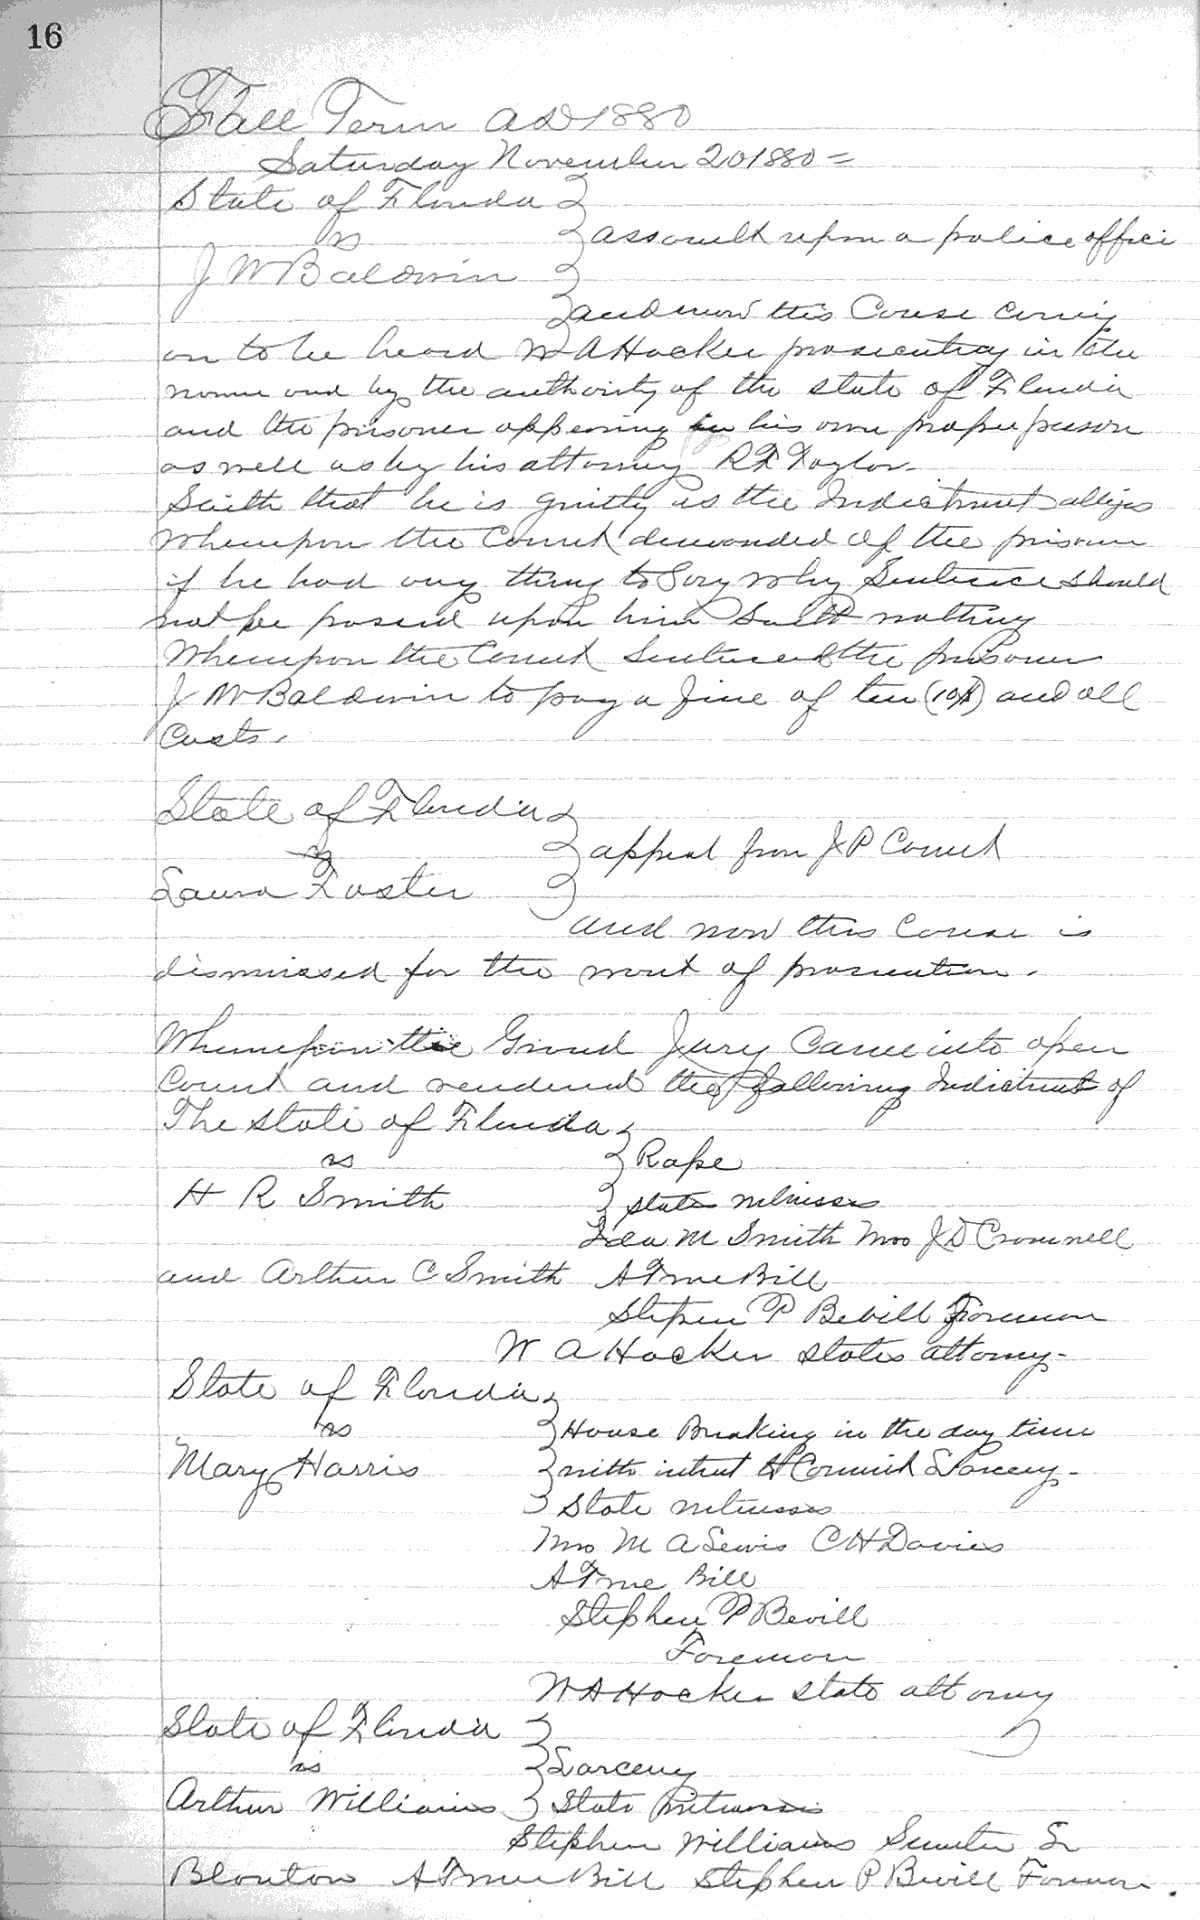 16
Fall Term AD 1880
Saturday November 20 1880 =
State of Florida
vs
assault upon a police officer
J W Baldwin
and now this Cause coming
on to be heard W A Hocker prosecuting in the
name and by the authority of the state of Florida
and the prisoner appearing in his own proper person
as well as by his attorney R F Taylor
Saith that he is guilty as the Indictment alleges
Whereupon the Court demanded of the prisoner
if he had any thing to Say why Sentence should
not be passed upon him Saith nothing
Whereupon the Court Sentenced the prisoner
J W Baldwin to pay a fine of ten (10$) and all
Costs.
State of Florida
vs
appeal from J P Court
Laura Foster
and now this Cause is
dismissed for the want of prosecution.
Whereupon the Grand Jury Came into open
Court and rendered the following Indictment of
The State of Florida
vs
Rape
H R Smith
State witnesses
Ida M Smith Mrs J D Cromwell
and Arthur C Smith A True Bill
Stephen P Bevill Foreman
W A Hocker states attorney-
State of Florida
vs
House Breaking in the day time
Mary Harris
with intent to Commit Larceny-
State witnesses
Mrs M A Lewis C H Davies
A True Bill
Stephen P Bevill
Foreman
W A Hocker state attorney
State of Florida
vs
Larceny
Arthur Williams
State witnesses
Stephen Williams Sumter
Blanton A True Bill Stephen P Bevill Foreman.